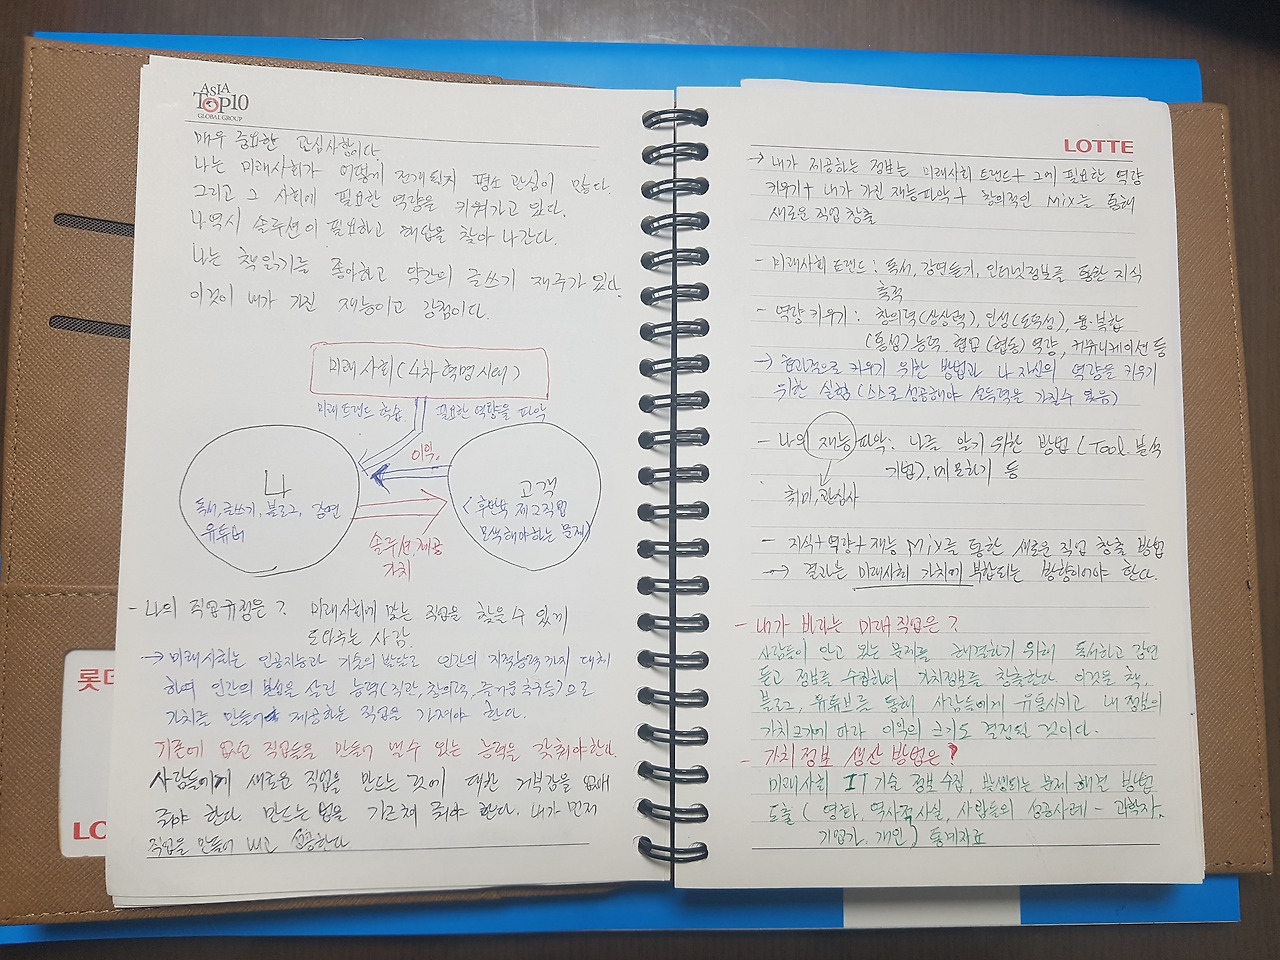 ASIA
TOP10
GLOBAL GROUP
매우 중요한 관심사항이다
나는 미래사회가 어떻게 전개될지 평소 관심이 많다.
그리고 그 사회에 필요한 역량을 키워가고 있다.
나 역시 솔루션이 필요하고 해답을 찾아 나간다.
나는 책읽기를 좋아하고 약간의 글쓰기 재주가 있다.
이것이 내가 가진 재능이고 강점이다.
미래사회(4차 혁명시대)
미래트랜드 학습 필요한 역량을 파악
이익
나
독서, 글쓰기, 블로그, 강연
유튜버
고객
(후반부 제2직업
모색해야하는 문제)
솔루션 제공
가치
- 나의 직업규정은? 미래사회에 맞는 직업을 찾을 수 있게
도와주는 사람.
→ 미래사회는 인공지능과 기술의 발달로 인간의 지적능력까지 대체
하며 인간의 본성을 살린 능력(직관, 창의력, 즐거움 추구등)으로
가치를 만들어 제공하는 직업을 가져야 한다.
기존에 없던 직업들을 만들어 낼 수 있는 능력을 갖춰야한다.
사람들에게 새로운 직업을 만드는 것에 대한 거부감을 없애
줘야 한다. 만드는 법을 가르쳐 줘야 한다. 내가 먼저
직업을 만들어 내고 성공한다.
롯데
LO
LOTTE
→ 내가 제공하는 정보는 미래사회 트랜드 + 그에 필요한 역량
키우기 + 내가 가진 재능파악 + 창의적인 Mix를 통해
새로운 직업 창출
- 미래사회 트랜드 : 독서, 강연듣기, 인터넷정보를 통한 지식
축적
- 역량 키우기 : 창의력(상상력), 인성(도덕성), 융·복합
(통섭) 능력, 협업(협동) 역량, 커뮤니케이션 등
→ 효과적으로 키우기 위한 방법과 나 자신의 역량을 키우기
위한 실험 (스스로 성공해야 설득력을 가질수 있음)
- 나의 재능 파악 : 나를 알기 위한 방법 (Tool 분석
기법), 메모하기 등
취미, 관심사
- 지식 + 역량 + 재능 Mix를 통한 새로운 직업 창출 방법
→ 결과는 미래사회 가치에 부합되는 방향이어야 한다.
- 내가 바라는 미래직업은?
사람들이 안고 있는 문제를 해결하기 위해 독서하고 강연
듣고 정보를 수집하여 가치정보를 창출한다. 이것을 책,
블로그, 유튜브를 통해 사람들에게 유통시키고 내 정보의
가치크기에 따라 이익의 크기도 결정될 것이다.
- 가치정보 생산 방법은?
미래사회 IT기술 정보수집, 발생되는 문제 해결 방법
도출 ( 영화, 역사적사실, 사람들의 성공사례 - 과학자,
기업가, 개인) 통계자료